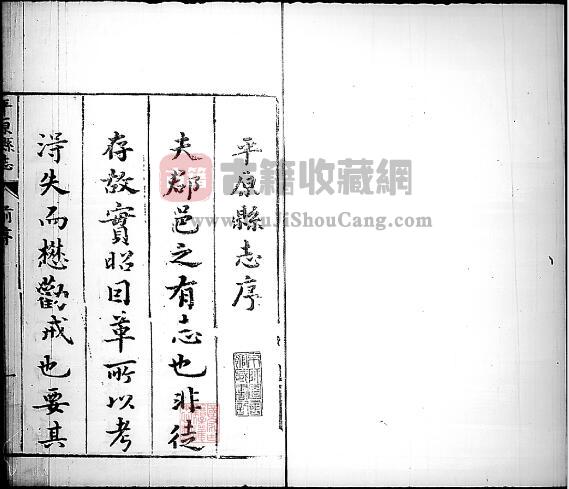 平原縣志序
夫郡邑之有志也非徒
存故實昭因革所以考
淂失而懋勸戒也要其
平原縣志
前序
古籍
古籍收藏网
www.GuJiShouCang.com